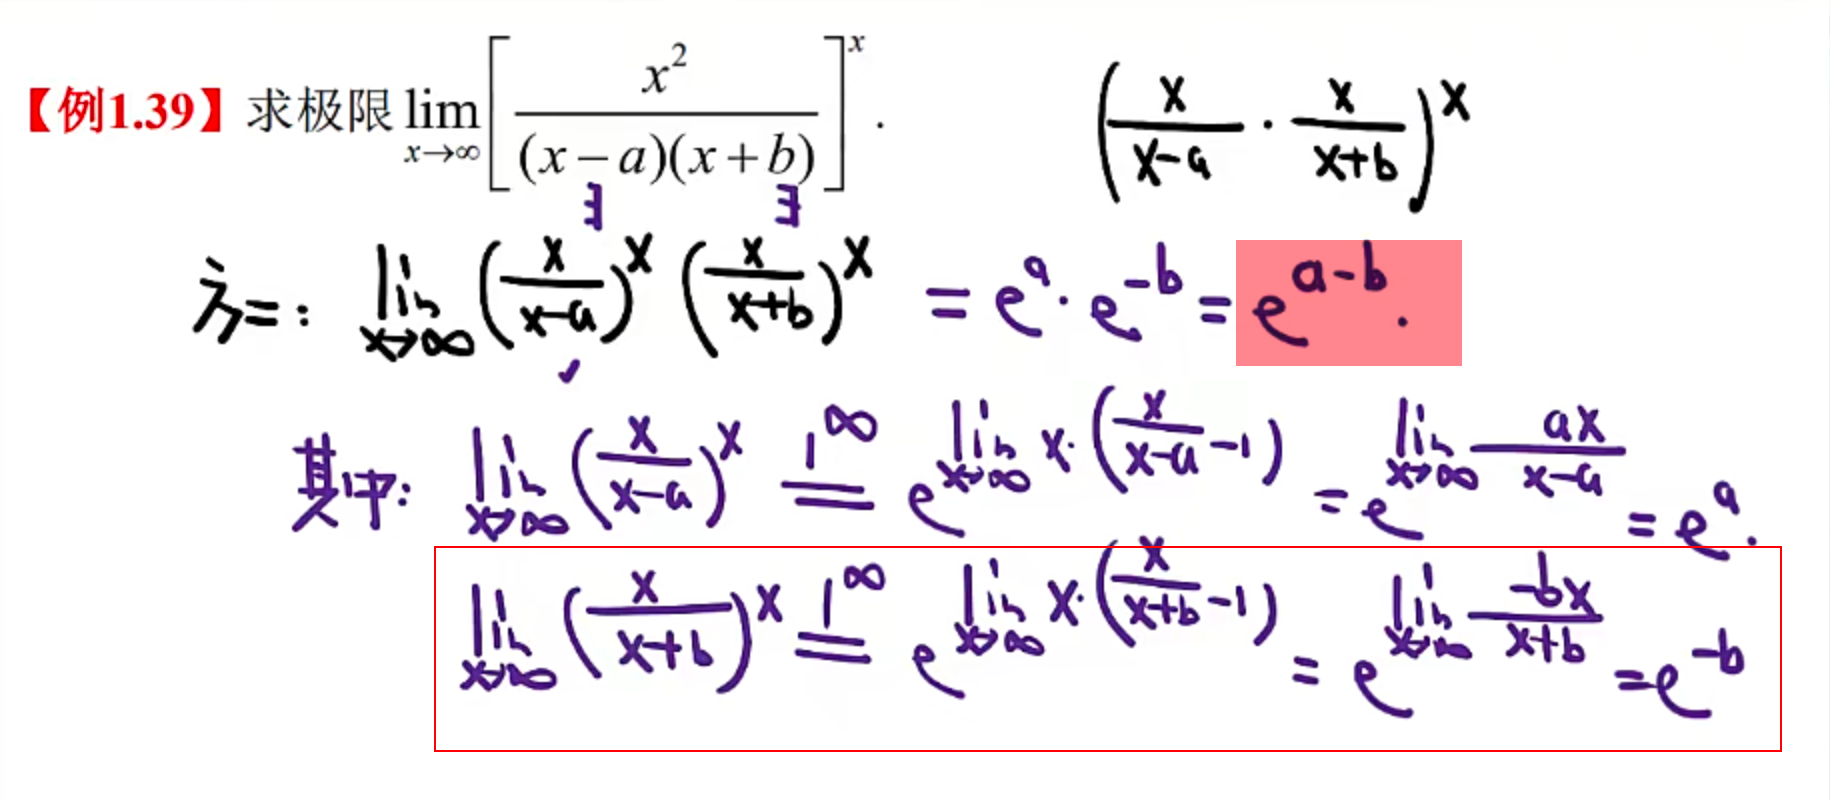 【例1.39】求极限 lim_{x→∞} [x² / ((x−a)(x+b))]^x . (x/(x-a) · x/(x+b))^x
方二: lim_{x→∞} (x/(x-a))^x (x/(x+b))^x = e^a · e^{-b} = e^{a-b}.
∃ ∃
✓
其中: lim_{x→∞} (x/(x-a))^x \overset{1^∞}{=} e^{lim_{x→∞} x·(x/(x-a) -1)} = e^{lim_{x→∞} ax/(x-a)} = e^a.
lim_{x→∞} (x/(x+b))^x \overset{1^∞}{=} e^{lim_{x→∞} x·(x/(x+b) -1)} = e^{lim_{x→∞} -bx/(x+b)} = e^{-b}